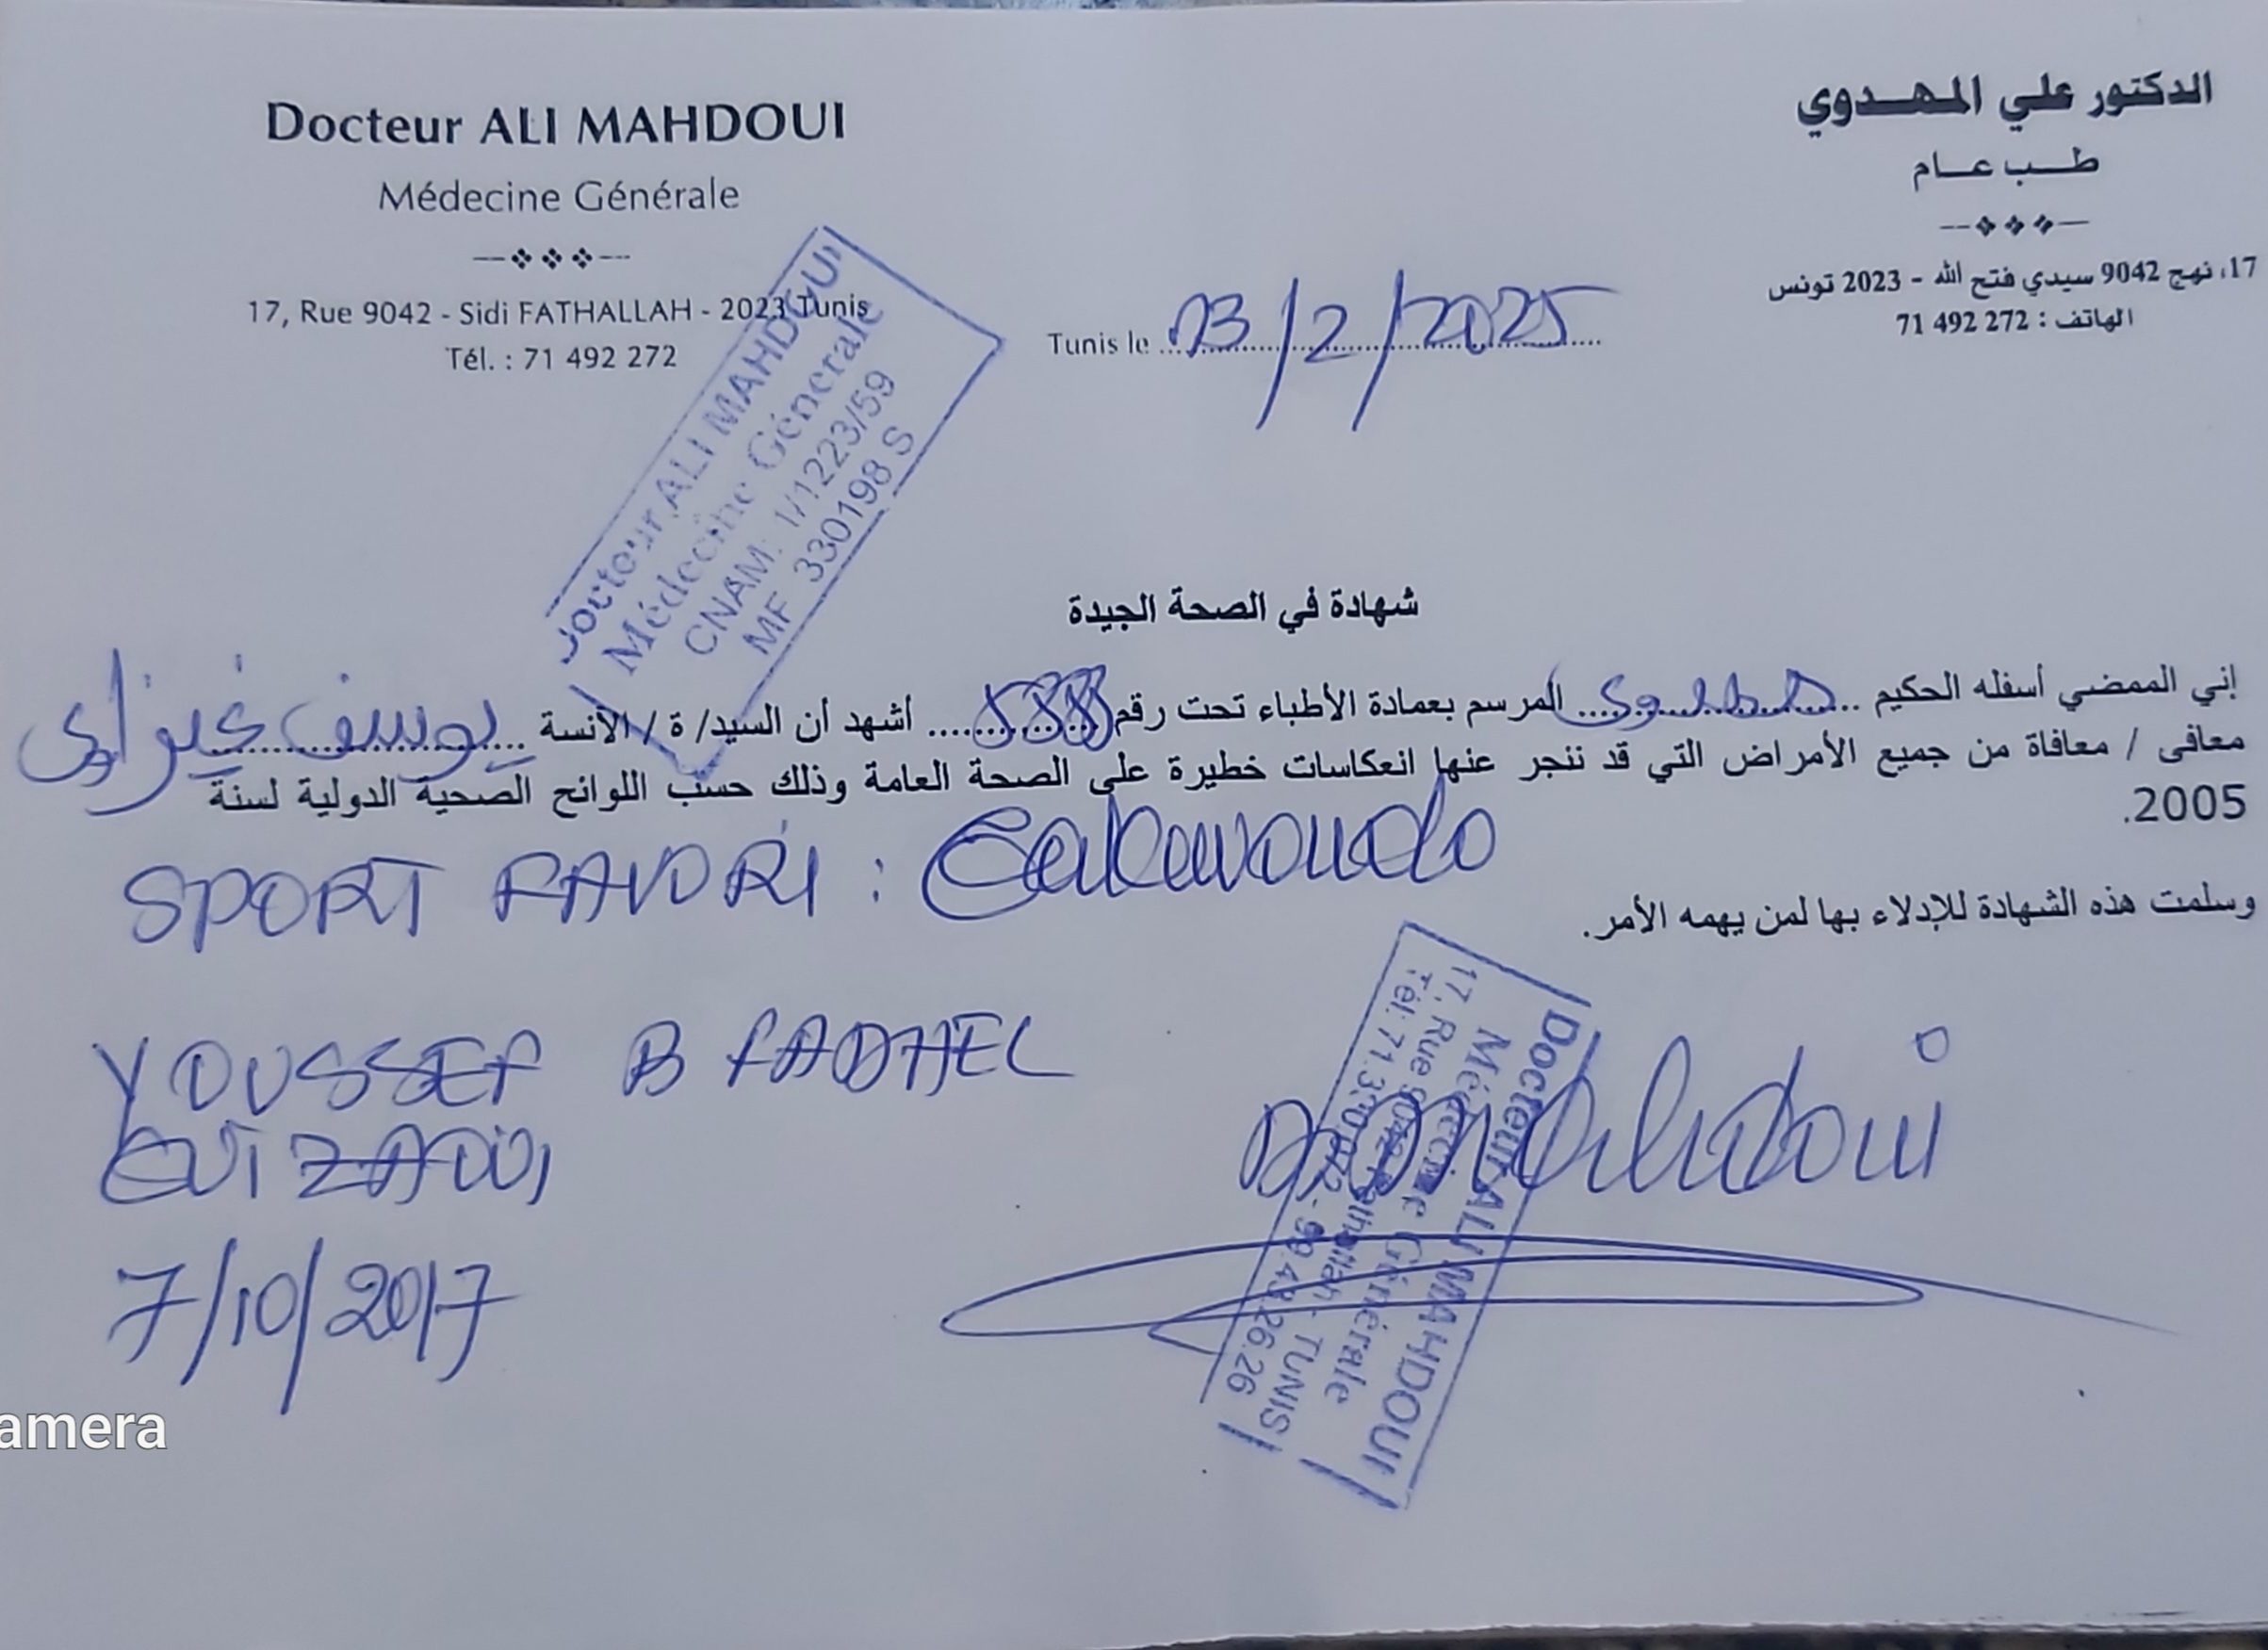 Docteur ALI MAHDOUI
Médecine Générale
17, Rue 9042 - Sidi FATHALLAH - 2023 Tunis
Tél. : 71 492 272
الدكتور علي المهدوي
طب عام
17، نهج 9042 سيدي فتح الله - 2023 تونس
الهاتف : 272 492 71
Tunis le 13/2/2025
Docteur ALI MAHDOUI
Médecine Générale
CNAM: 1/1223/59
MF 330198 S
شهادة في الصحة الجيدة
إني الممضي أسفله الحكيم المرسم بعمادة الأطباء تحت رقم أشهد أن السيد/ ة / الآنسة يوسف
معافى / معافاة من جميع الأمراض التي قد ننجر عنها انعكاسات خطيرة على الصحة العامة وذلك حسب اللوائح الصحية الدولية لسنة
2005.
SPORT FAVORI :
وسلمت هذه الشهادة للإدلاء بها لمن يهمه الأمر.
YOUSSEF B FADHEL
GUIZAOUI
7/10/2017
Dr Mahdoui
Docteur ALI MAHDOUI
Médecine Générale
17, Rue 9042 - Fathallah - TUNIS
amera